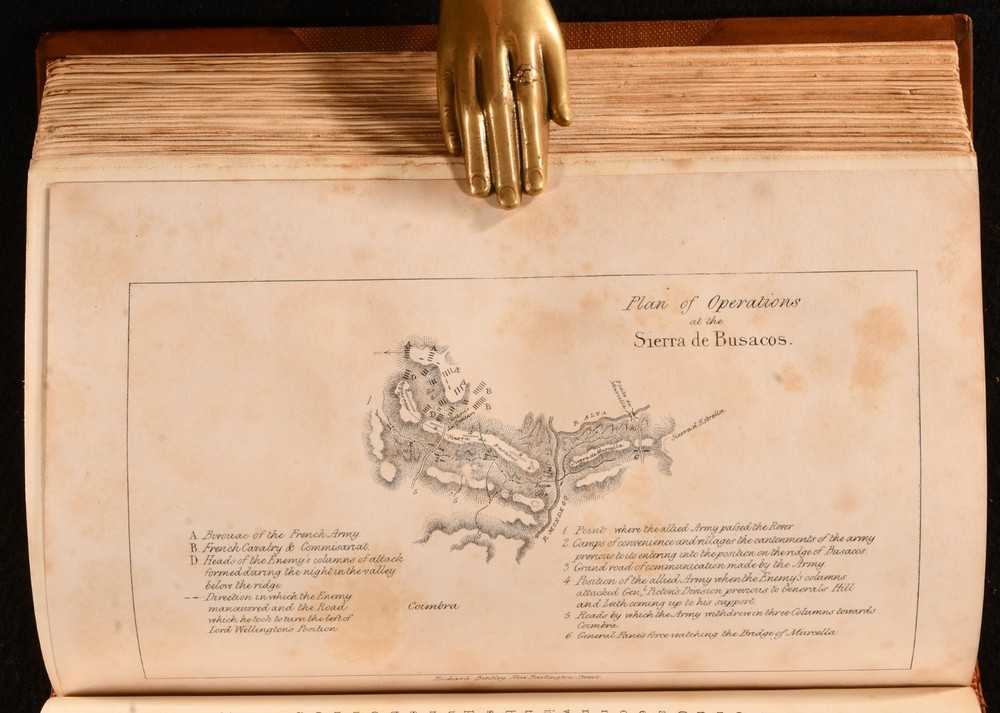 Plan of Operations
at the
Sierra de Busacos.
A
B
B
D
D
1
R. ALVA
Sierra d'Estrella
Sierra de
Sierra de Murcella
5
5
R. MONDEGO
A Bivouac of the French Army
B. French Cavalry & Commisariat.
D Heads of the Enemy's columns of attack
formed during the night in the valley
below the ridge
--- Direction in which the Enemy
manœuvred and the Road
which he took to turn the left of
Lord Wellington's Position.
Coimbra
1 Point where the allied Army passed the River
2. Camps of convenience and villages the cantonments of the army
previous to its entering into the position on the ridge of Busacos.
3. Grand road of communication made by the Army
4 Position of the allied Army when the Enemy's columns
attacked Gen.l Picton's Division previous to Generals Hill
and Leith coming up to his support
5. Roads by which the Army withdrew in three Columns towards
Coimbra.
6 General Fane's force watching the Bridge of Murcella
Richard Bentley New Burlington Street